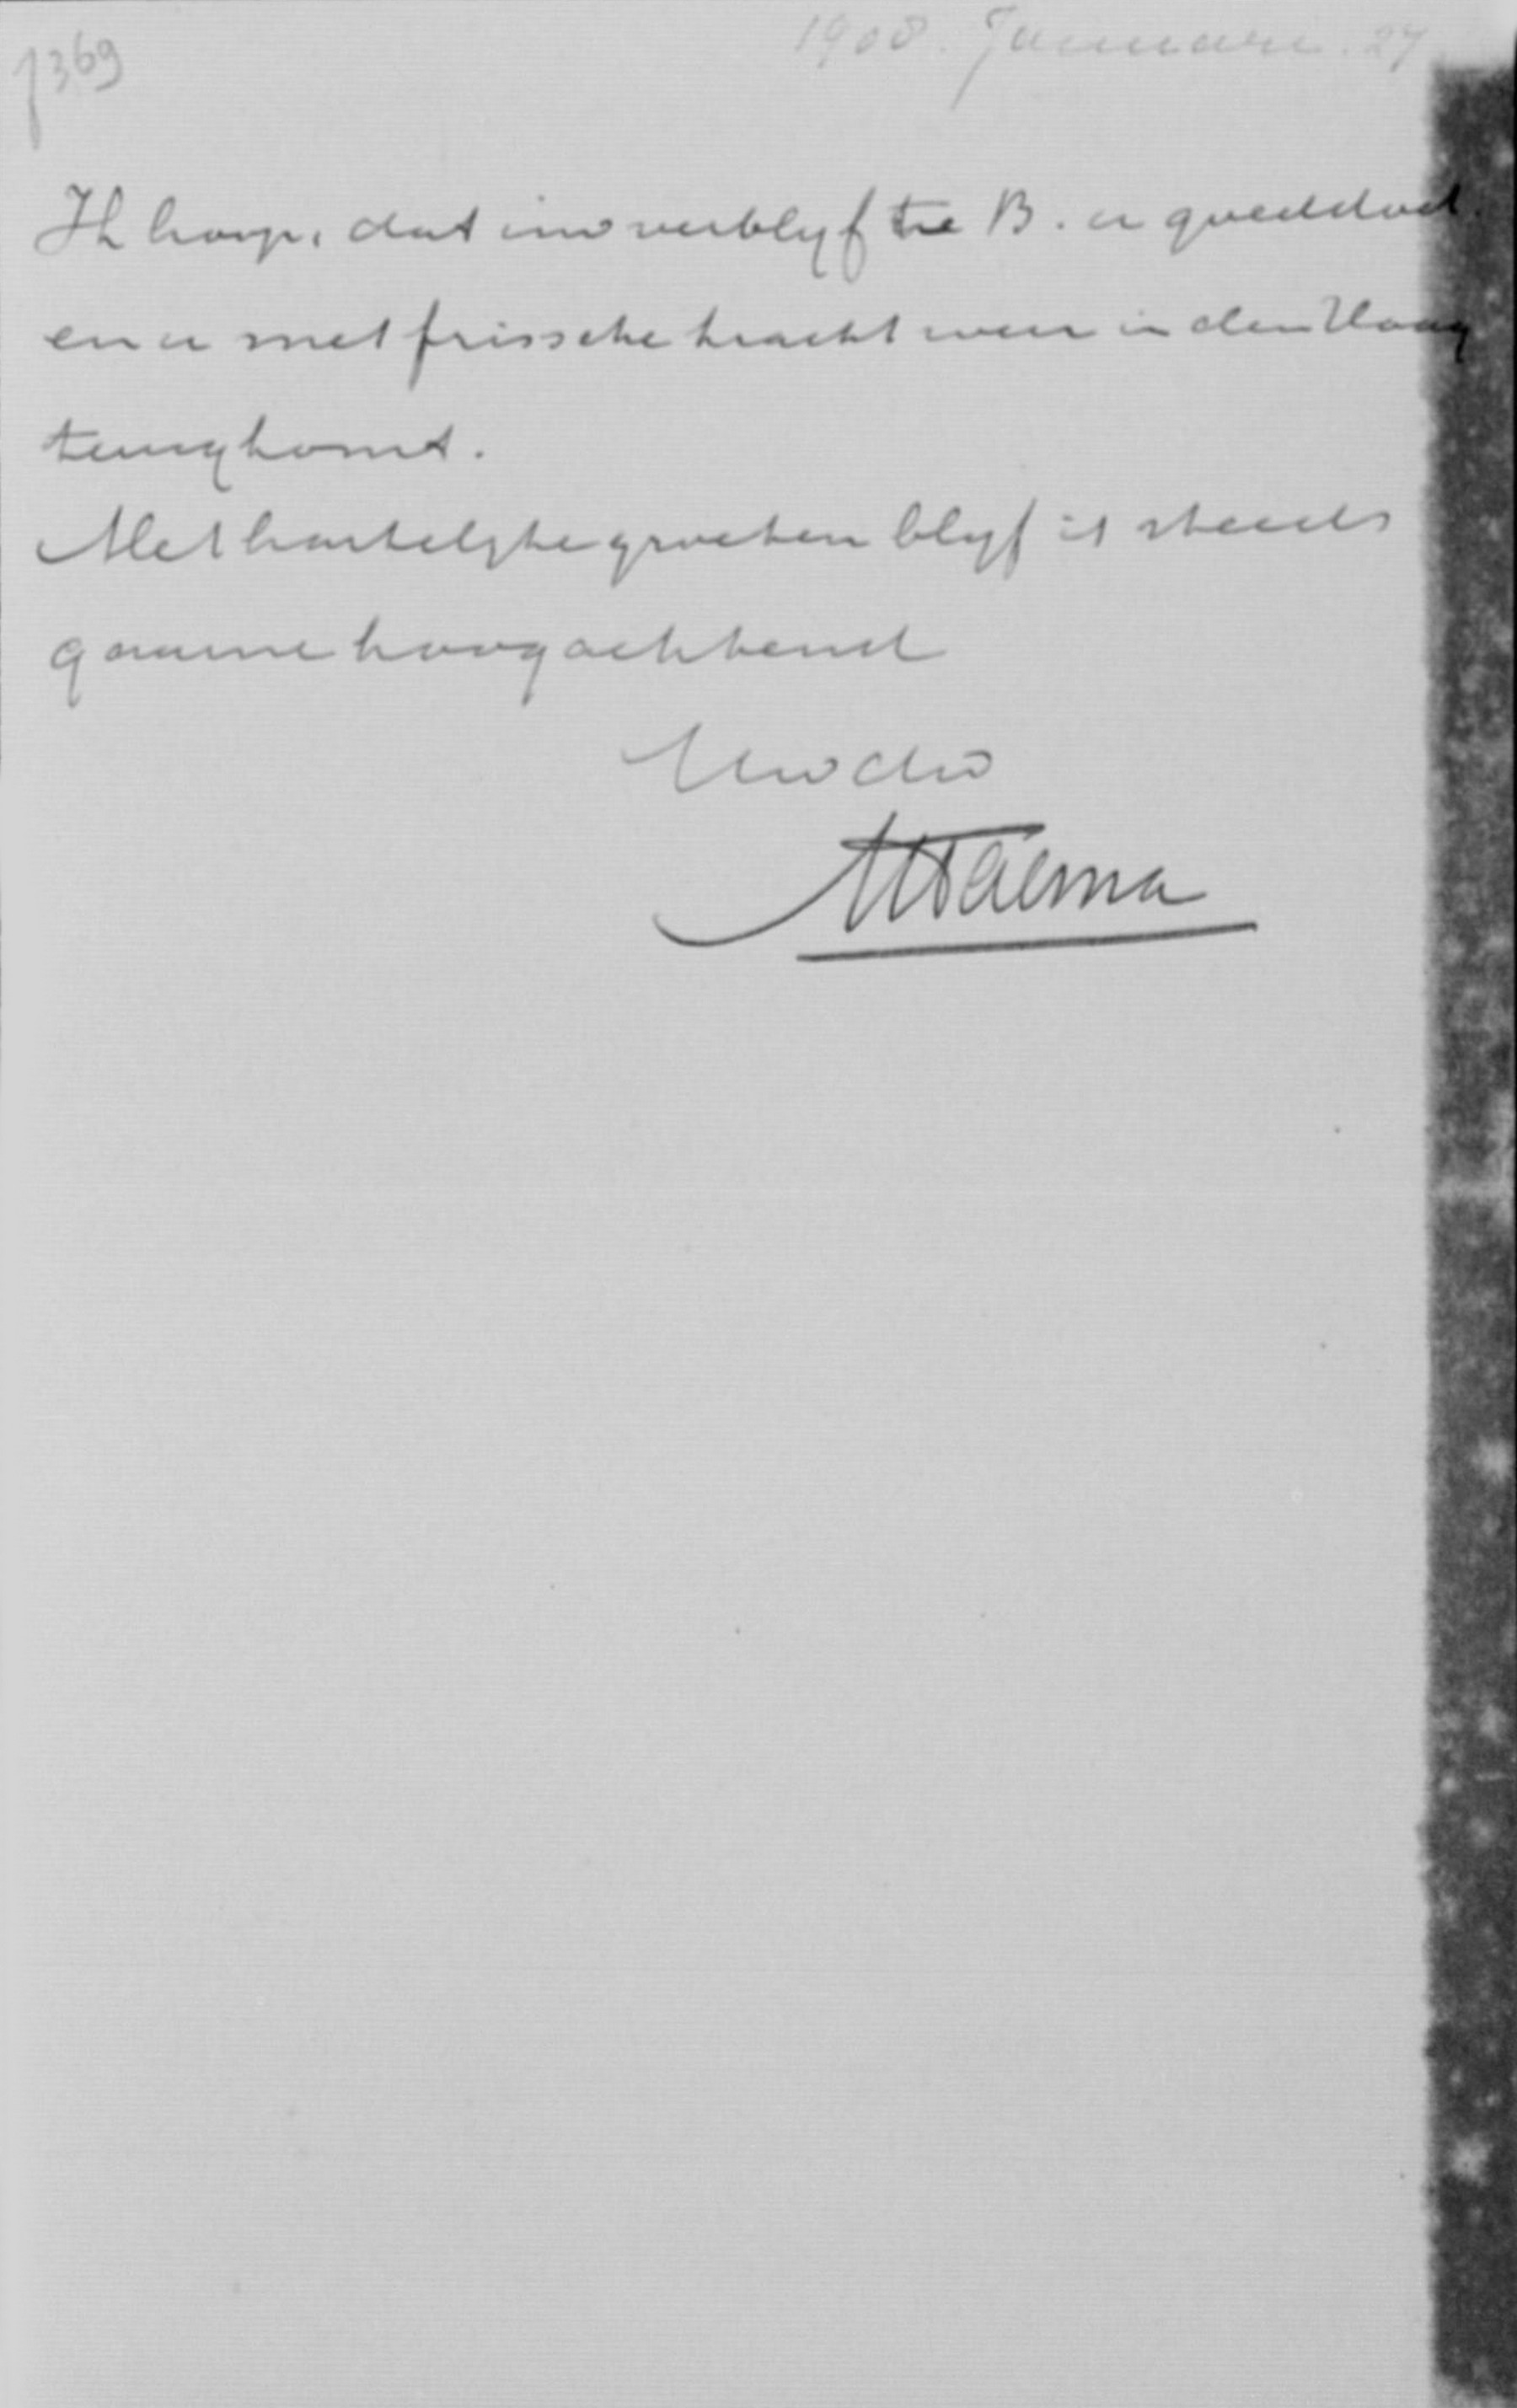 7369
1908. Januari. 27
Ik hoop, dat uw verblyf te B. u goeddoet
en u met frissche kracht weer in den Haag
terugkomt.
Met hartelyke groeten blyf ik steeds
gaarne hoogachtend
Uw dw
AS Talma